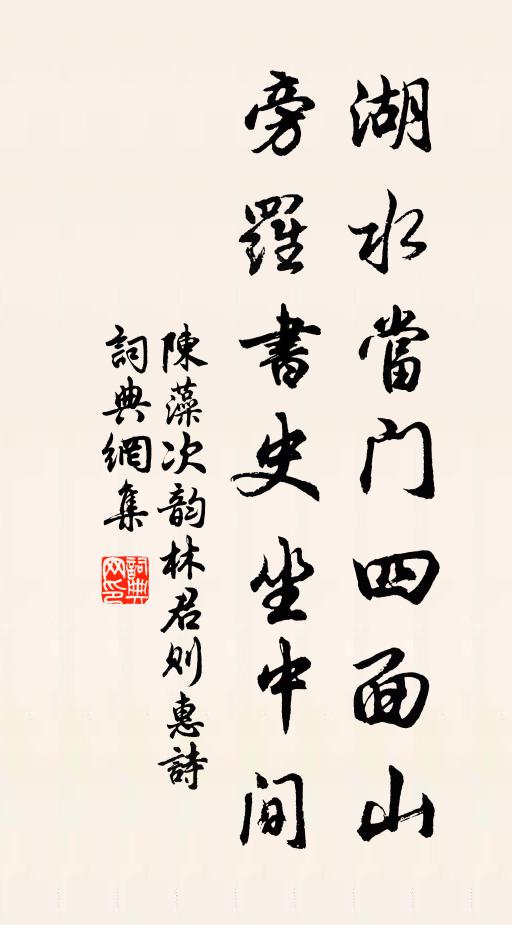 湖水當门四面山
旁羅書史坐中间
陳藻次韵林君则惠詩
詞典網集
詞典网印